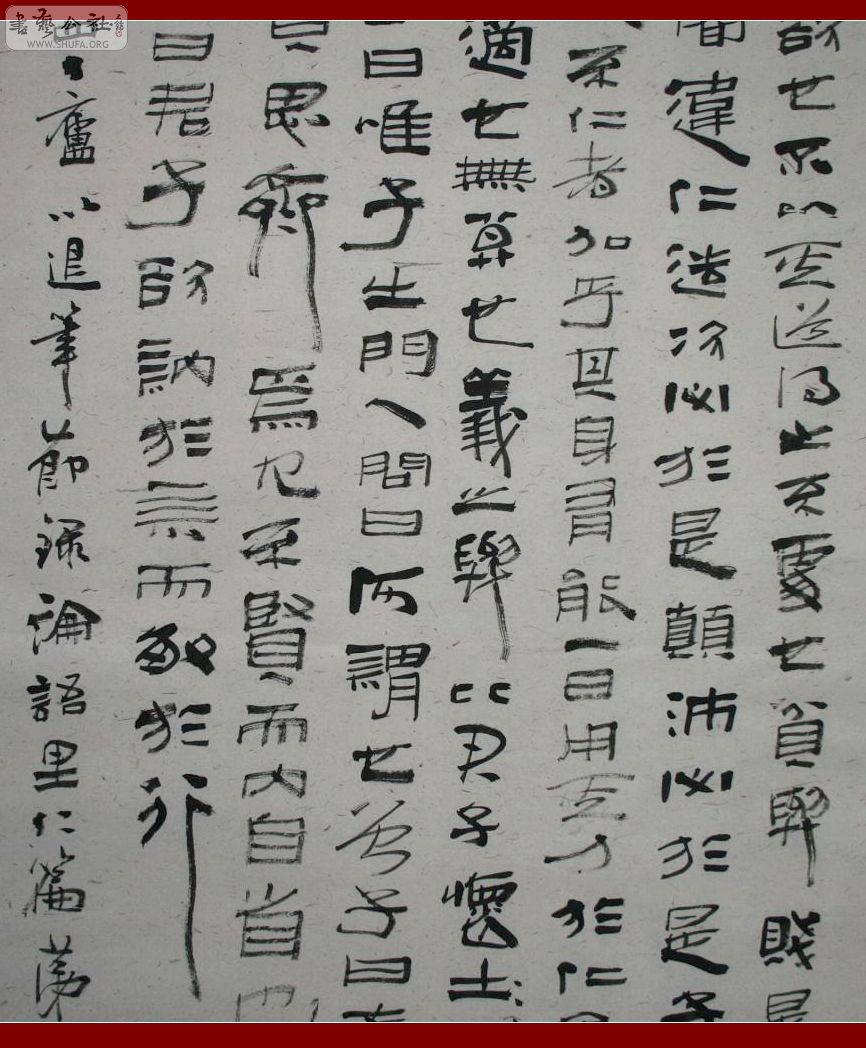 書藝公社
WWW.SHUFA.ORG
欲也不以其道得之不處也貧與賤是
間違仁造次必於是顛沛必於是子
不仁者加乎其身有能一日用其力於仁
適也無莫也義之與比君子懷土
曰唯子出門人問曰何謂也曾子曰夫
思齊焉見不賢而內自省也
曰君子欲訥於言而敏於行
廬以退筆節錄論語里仁篇第